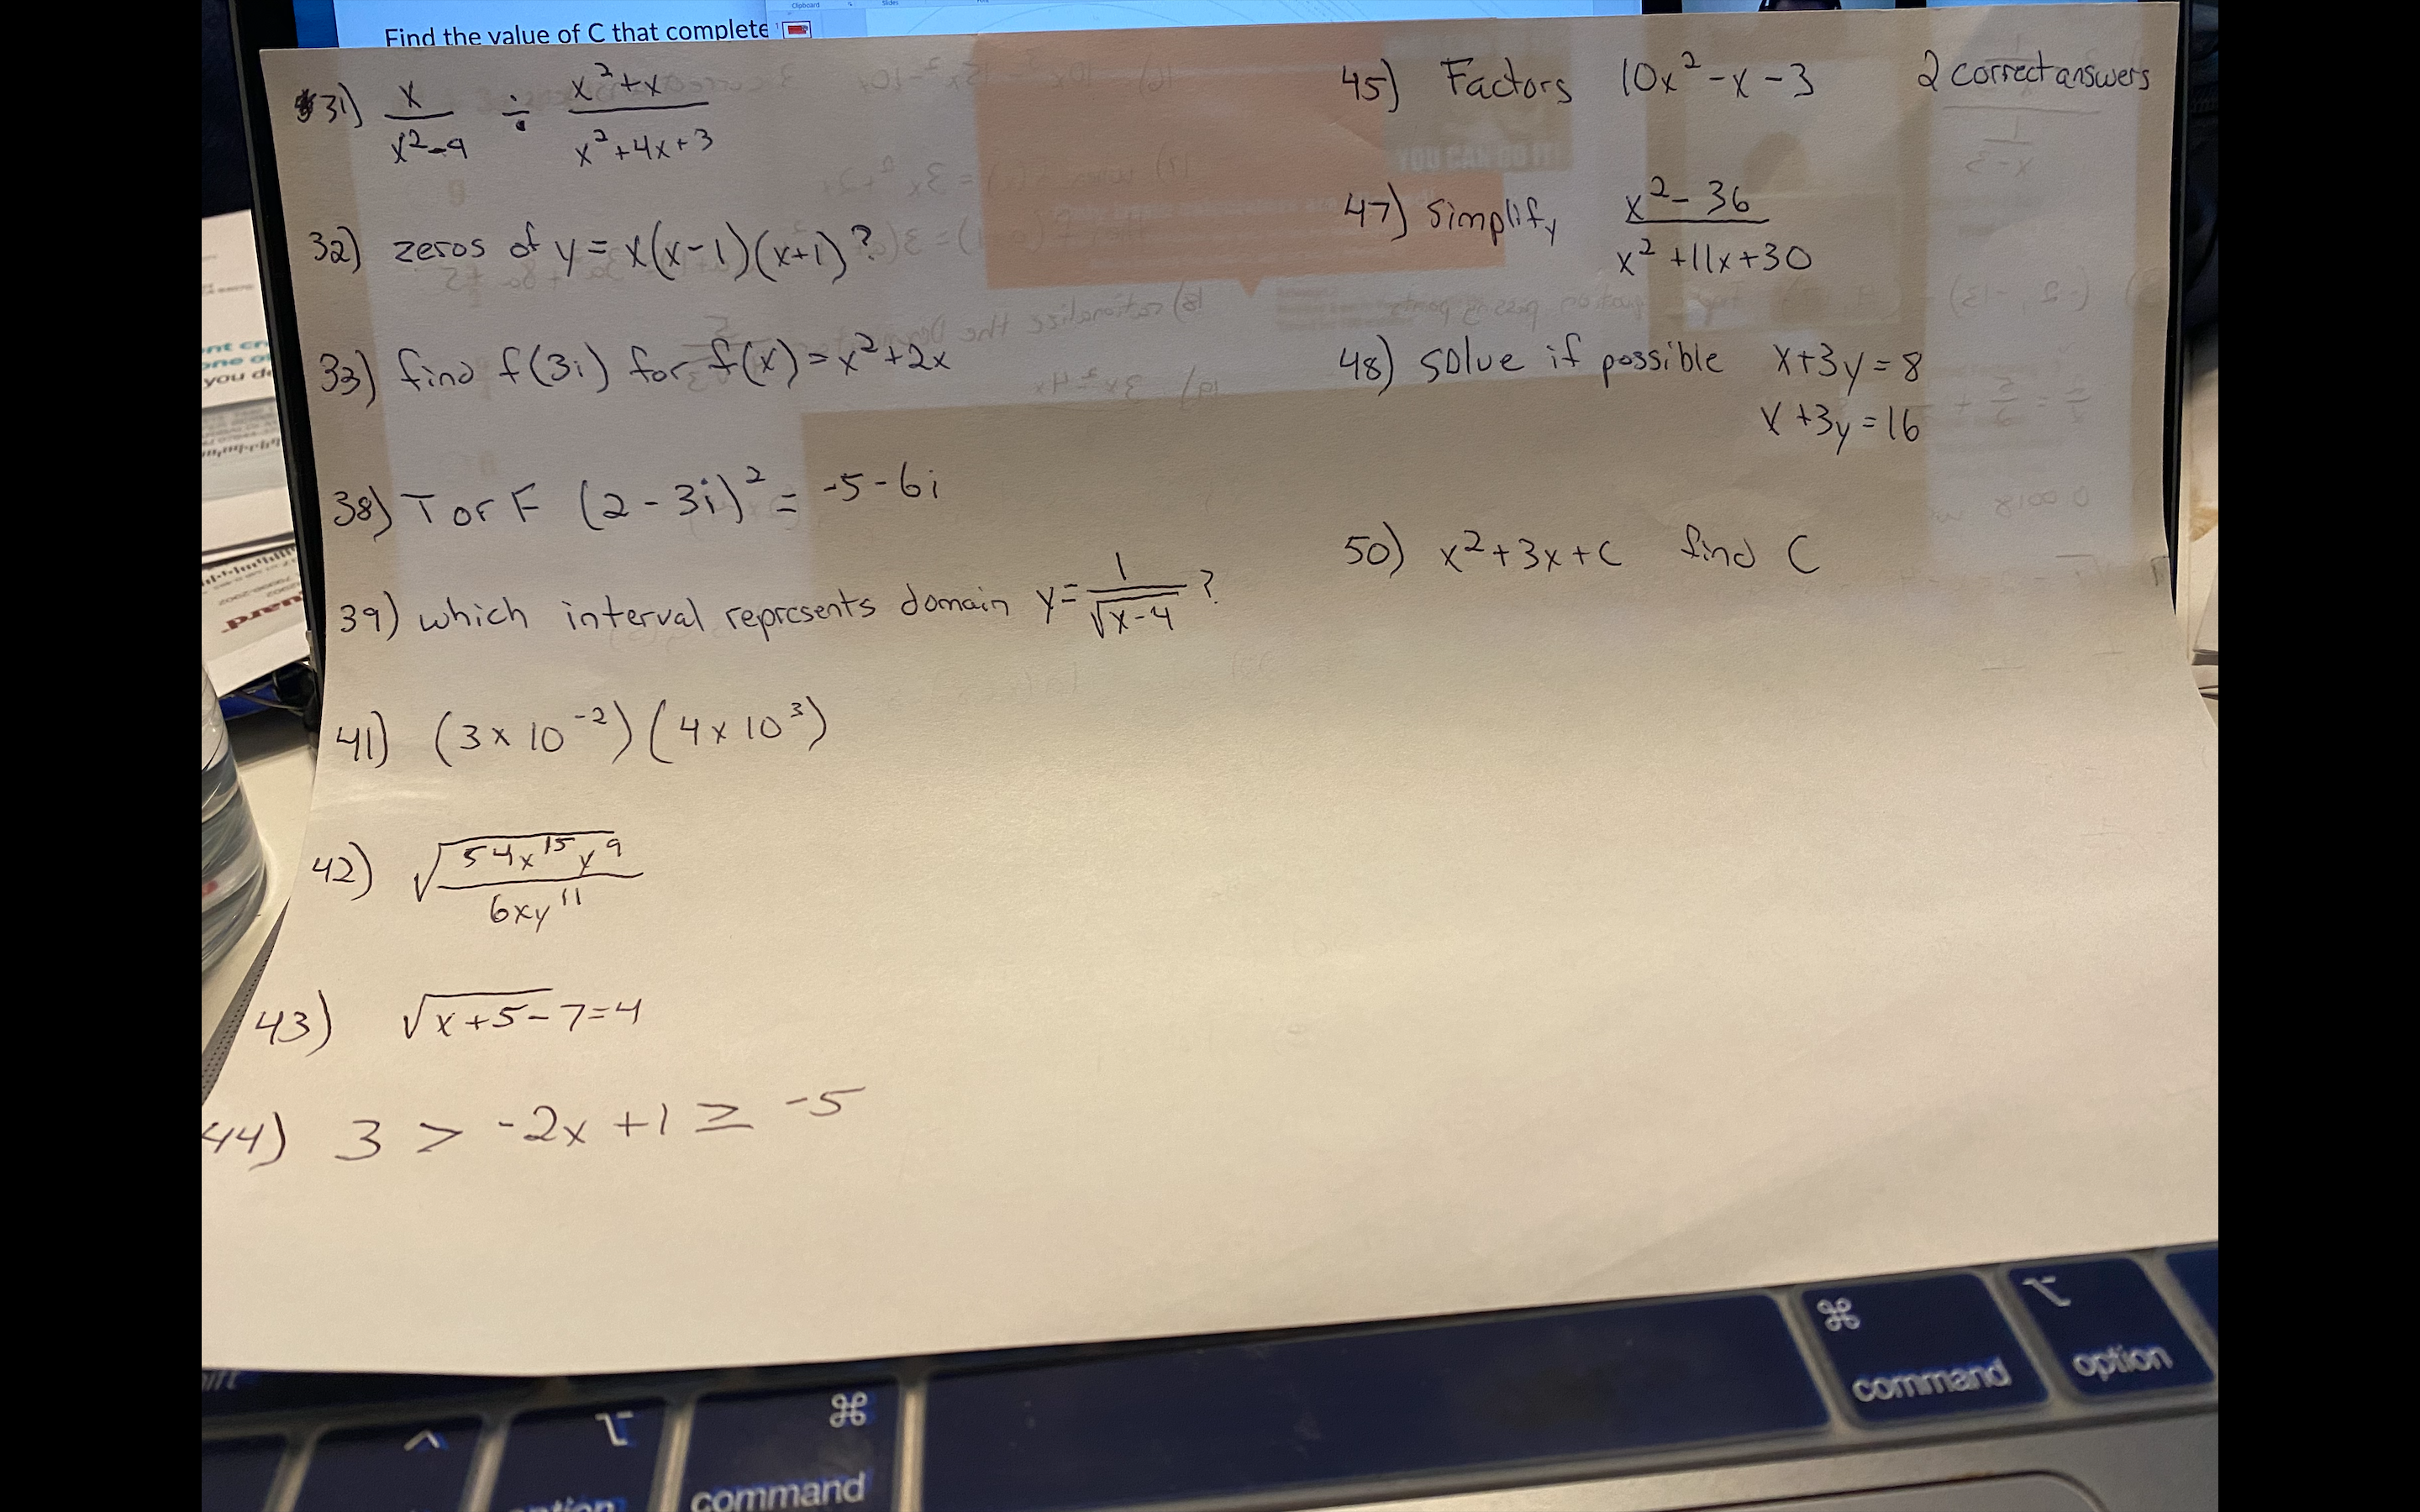 Find the value of C that complete
Clipboard
Slides
31) x/(x²-9) ÷ (x²+x)/(x²+4x+3)
32) zeros of y = x(x-1)(x+1)?
33) find f(3i) for f(x) = x²+2x
38) T or F (2-3i)² = -5-6i
39) which interval represents domain y = 1/√(x-4) ?
41) (3x10⁻²)(4x10³)
42) √(54x¹⁵y⁹/6xy¹¹)
43) √(x+5) - 7 = 4
44) 3 > -2x+1 ≥ -5
45) Factors 10x²-x-3 2 correct answers
47) simplify (x²-36)/(x²+11x+30)
48) solve if possible x+3y=8
x+3y=16
50) x²+3x+C find C
YOU CAN DO IT!
you d
⌘
command
⌥
option
^
⌥
⌘
command